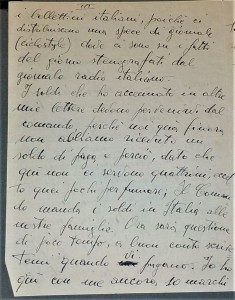 III
i bollettini italiani, poichè ci
distribuiscono una specie di giornale
(ciclostyle) dove ci sono su i fatti
del giorno stenografati dal
giornale radio italiano.
I soldi che ho accennato in altre
mie lettere devono pervenirvi dal
comando, perchè noi qua finora
non abbiamo ricevuto un
soldo di paga e perciò, dato che
qui non ci servono quattrini, eccet
to quei pochi per fumare, il Coman
do manda i soldi in Italia alle
nostre famiglie. Ora sarà questione
di poco tempo, a buon conto scrive
temi quando vi pagano. Io ho
qui con me ancora, 50 marchi